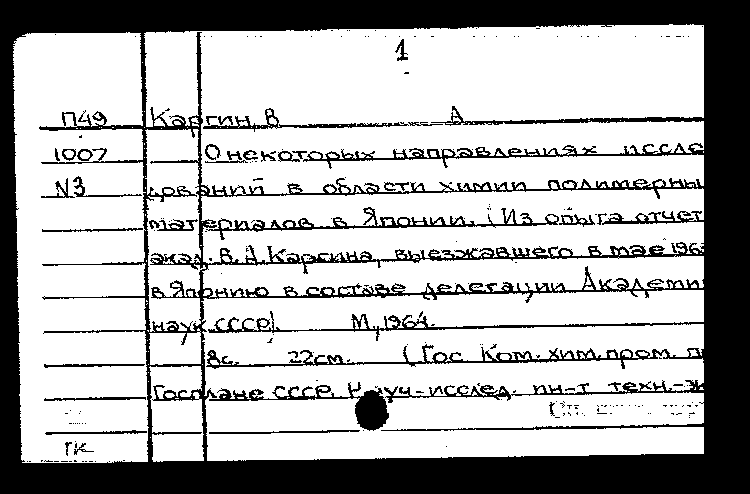 1
П49 Каргин, В А
1007 О некоторых направлениях иссле
N3 дований в области химии полимерны
материалов в Японии. (Из опыта отчет
акад. В.А. Каргина, выезжавшего в мае 1963
в Японию в составе делегации Академии
наук СССР). М., 1964.
8с. 22см. (Гос Ком. хим. пром. п
Госплане СССР. Науч-исслед. ин-т техн.-эк
ГК